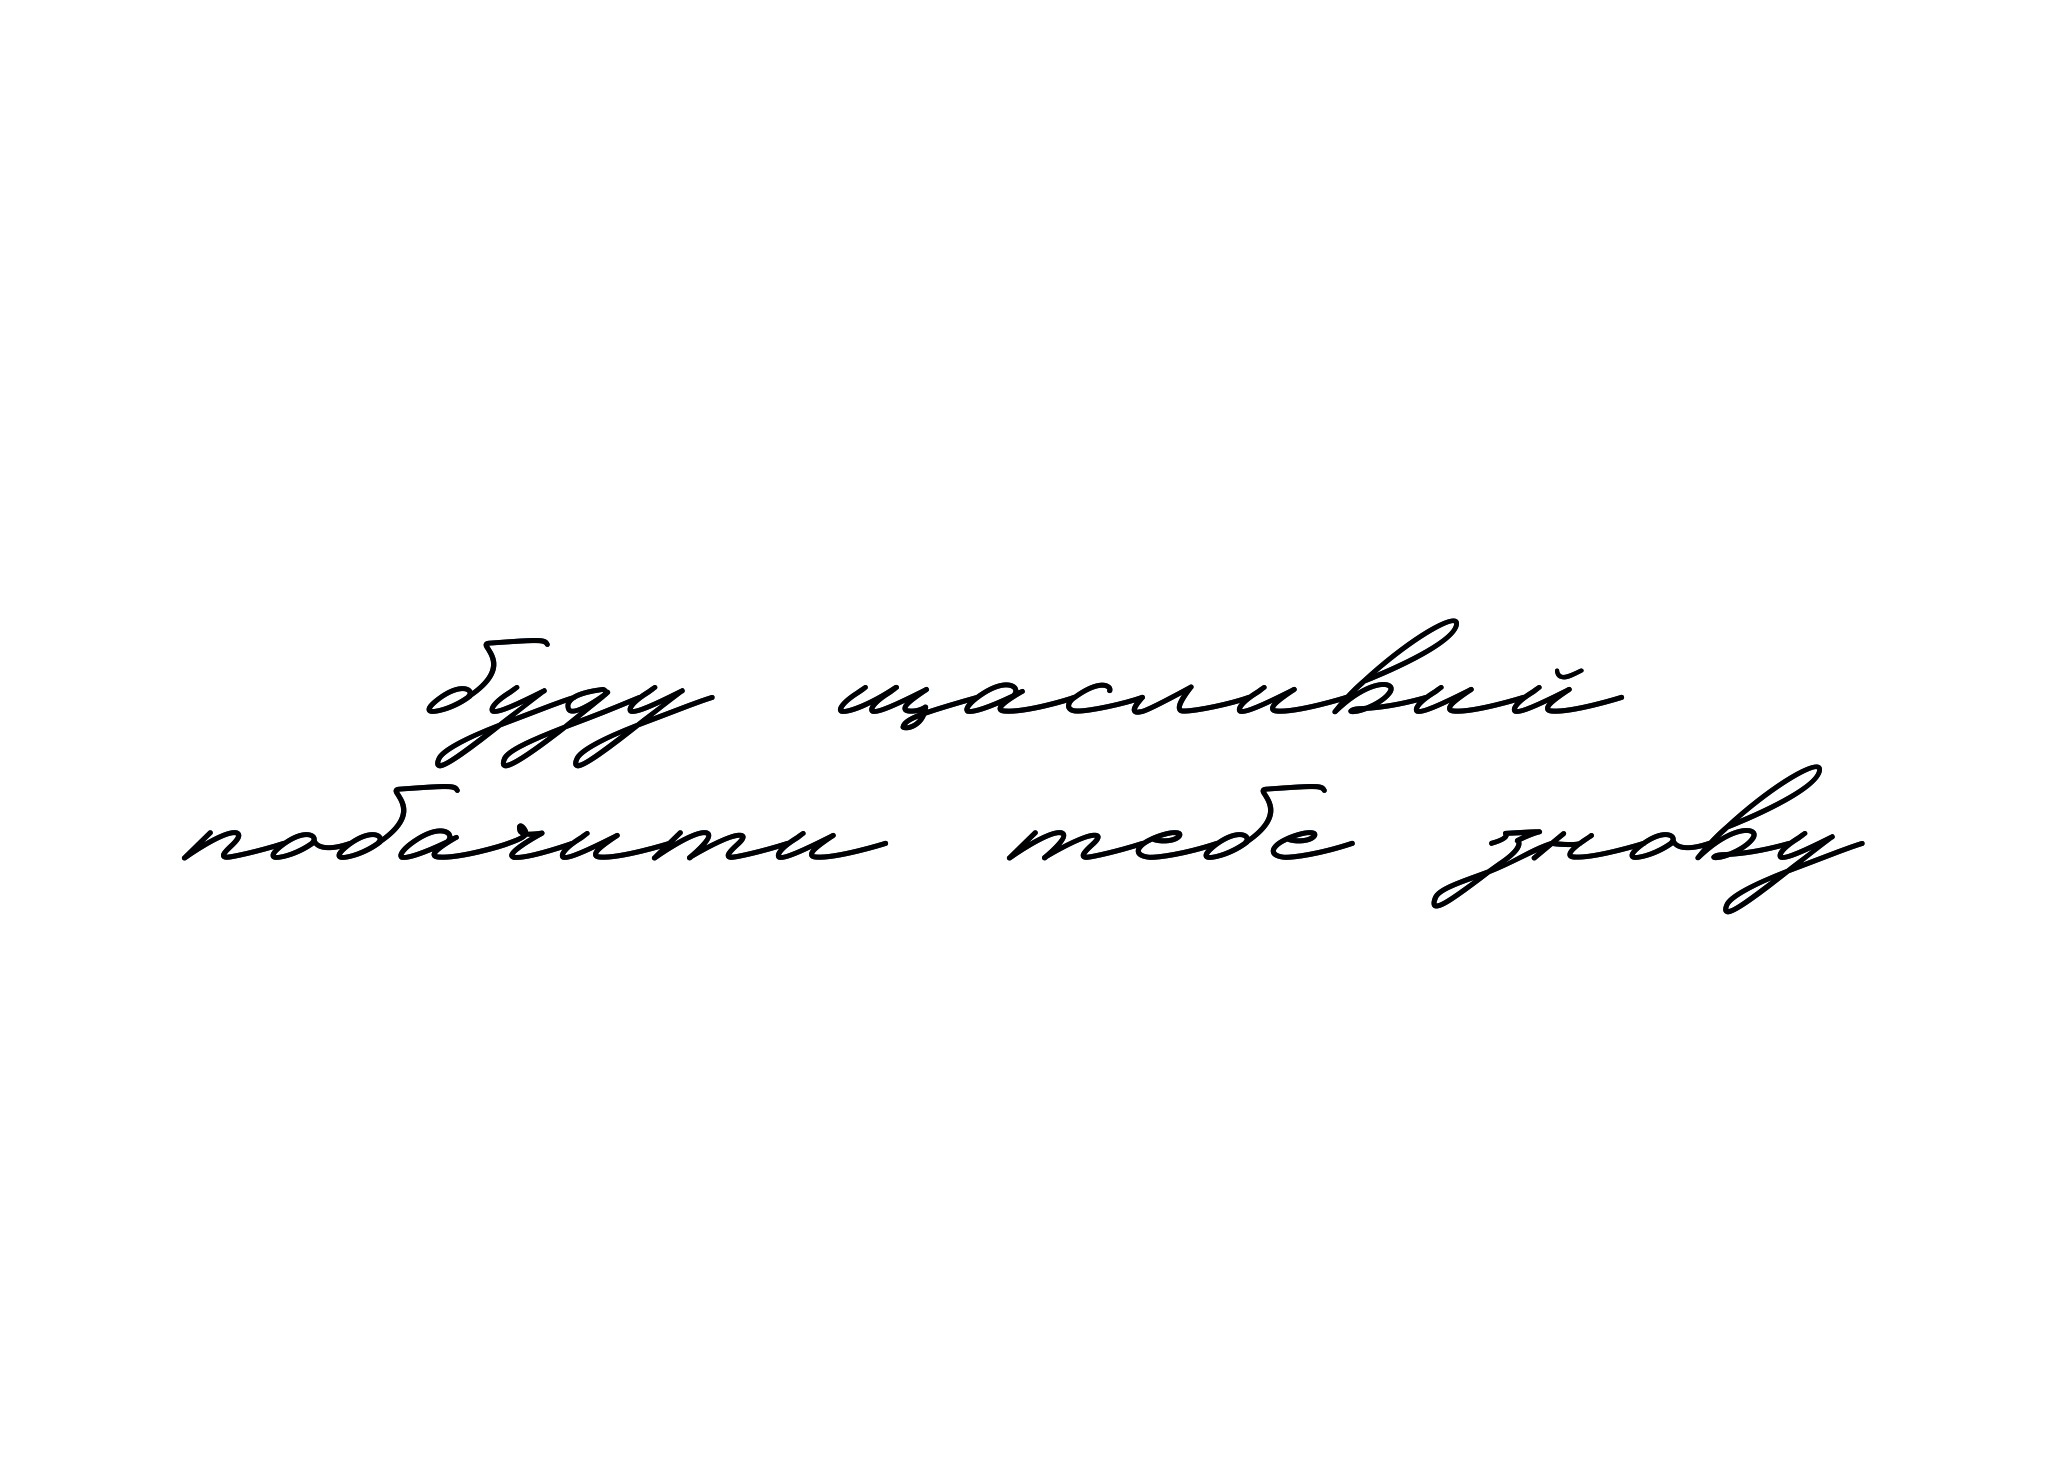 буду щасливий
побачити тебе знову